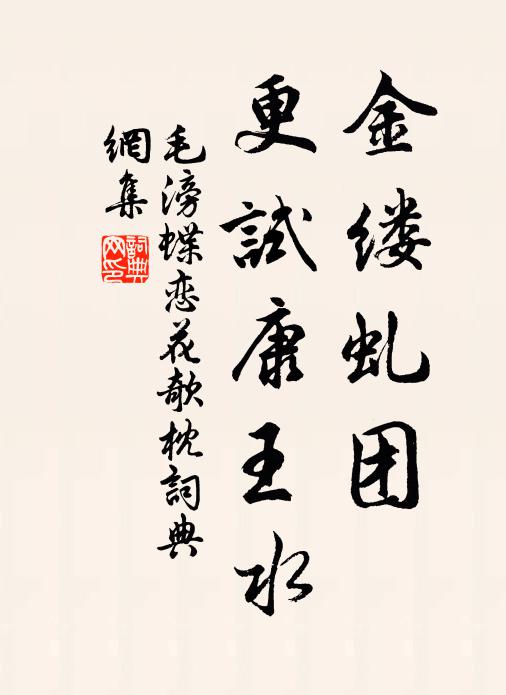 金缕虬团
更試康王水
毛滂蝶恋花欹枕詞典
網集
詞典
网印